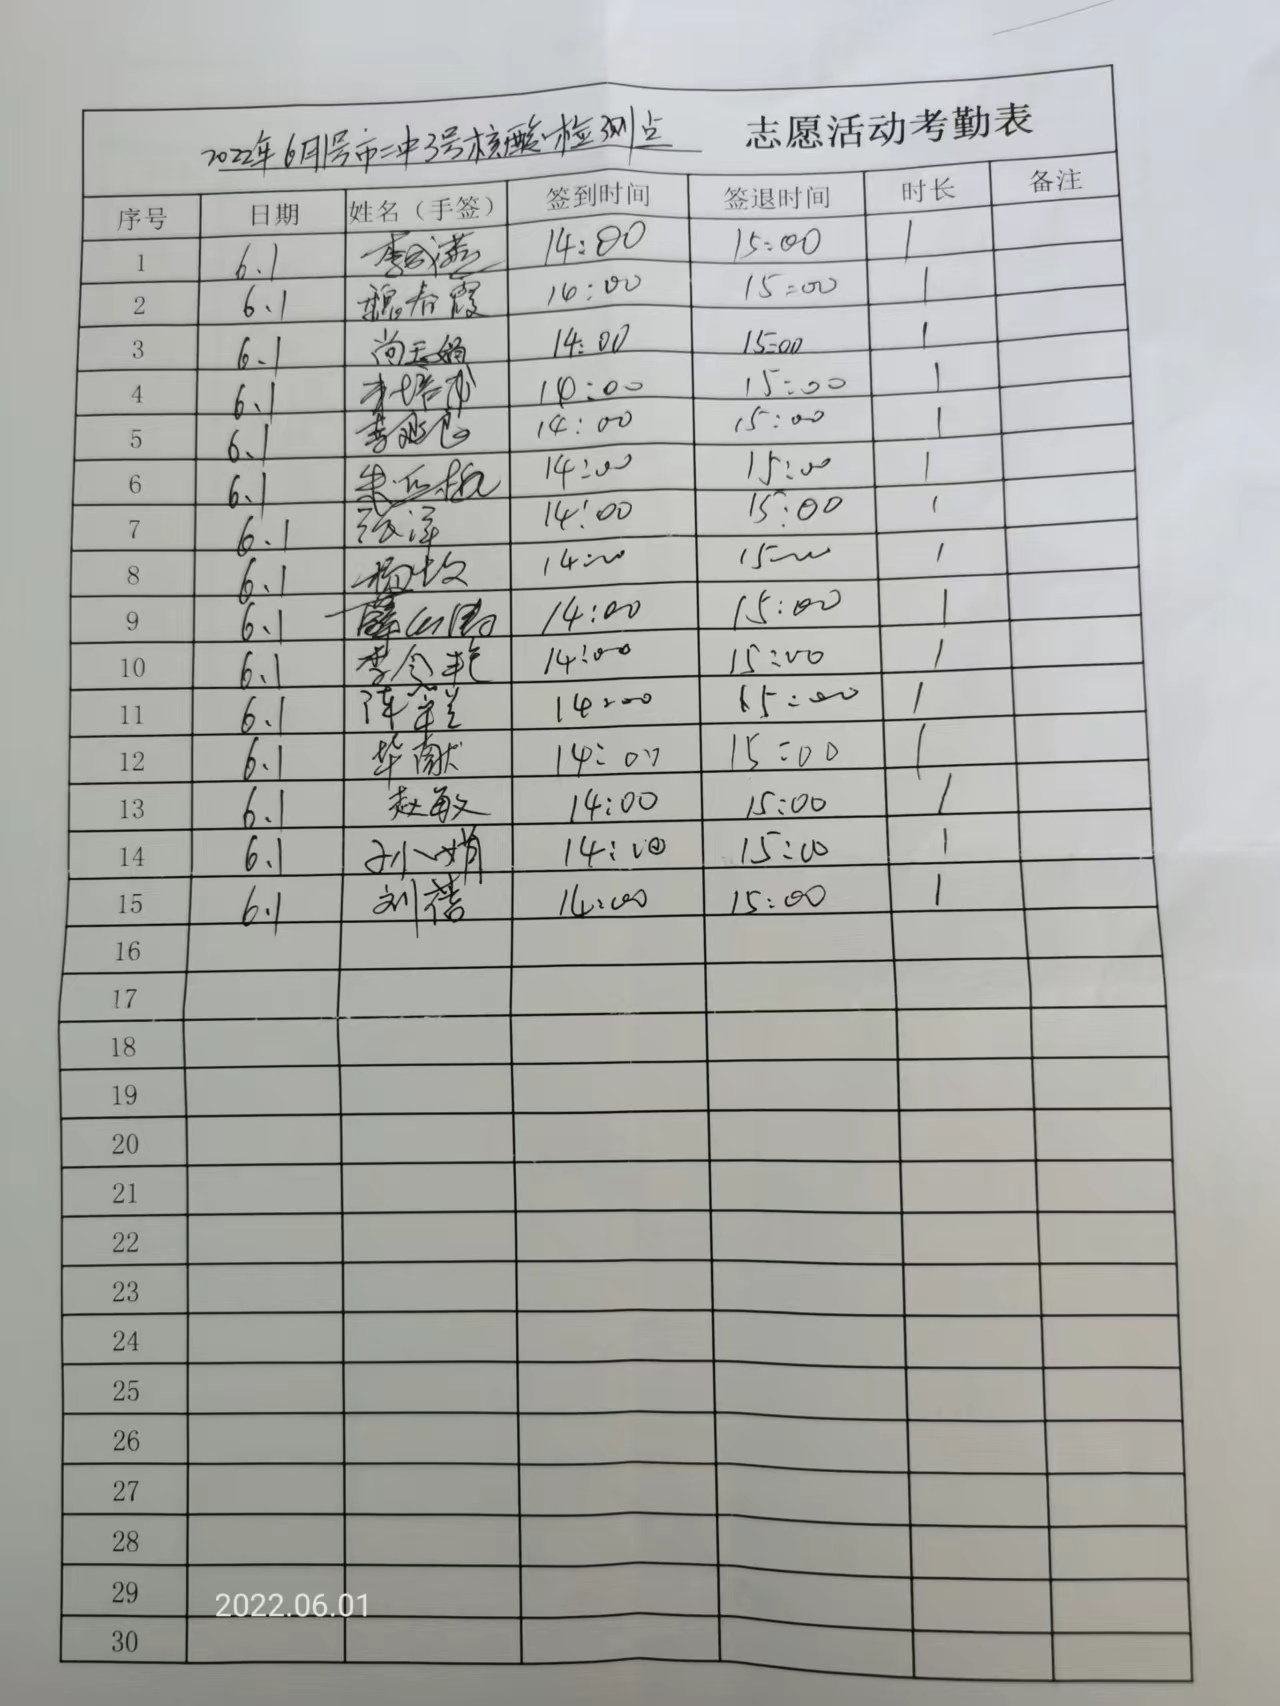 2022年6月1号市二中3号核酸检测点 志愿活动考勤表
序号 日期 姓名（手签） 签到时间 签退时间 时长 备注
1 6.1 14:00 15:00 1
2 6.1 魏春霞 14:00 15:00 1
3 6.1 尚玉娟 14:00 15:00 1
4 6.1 14:00 15:00 1
5 6.1 14:00 15:00 1
6 6.1 14:00 15:00 1
7 6.1 张洋 14:00 15:00 1
8 6.1 14:00 15:00 1
9 6.1 14:00 15:00 1
10 6.1 李令艳 14:00 15:00 1
11 6.1 14:00 15:00 1
12 6.1 毕献 14:00 15:00 1
13 6.1 赵敏 14:00 15:00 1
14 6.1 孙小娟 14:00 15:00 1
15 6.1 刘蓓 14:00 15:00 1
16
17
18
19
20
21
22
23
24
25
26
27
28
29
2022.06.01
30